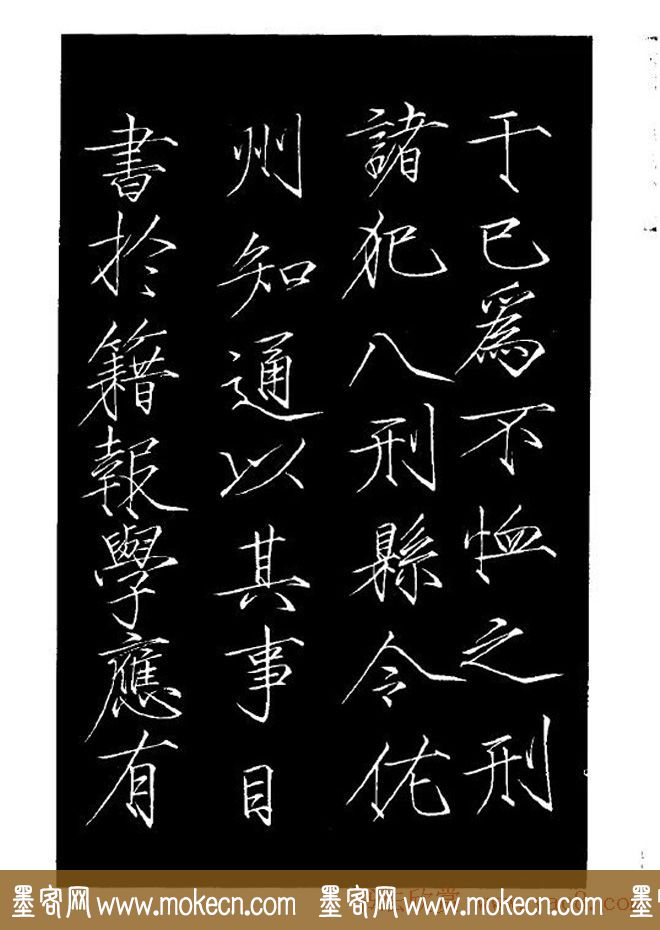 于已為不恤之刑
諸犯八刑縣令佐
州知通以其事目
書於籍報學應有
墨客网 www.mokecn.com 墨客网 www.mokecn.com 墨客网